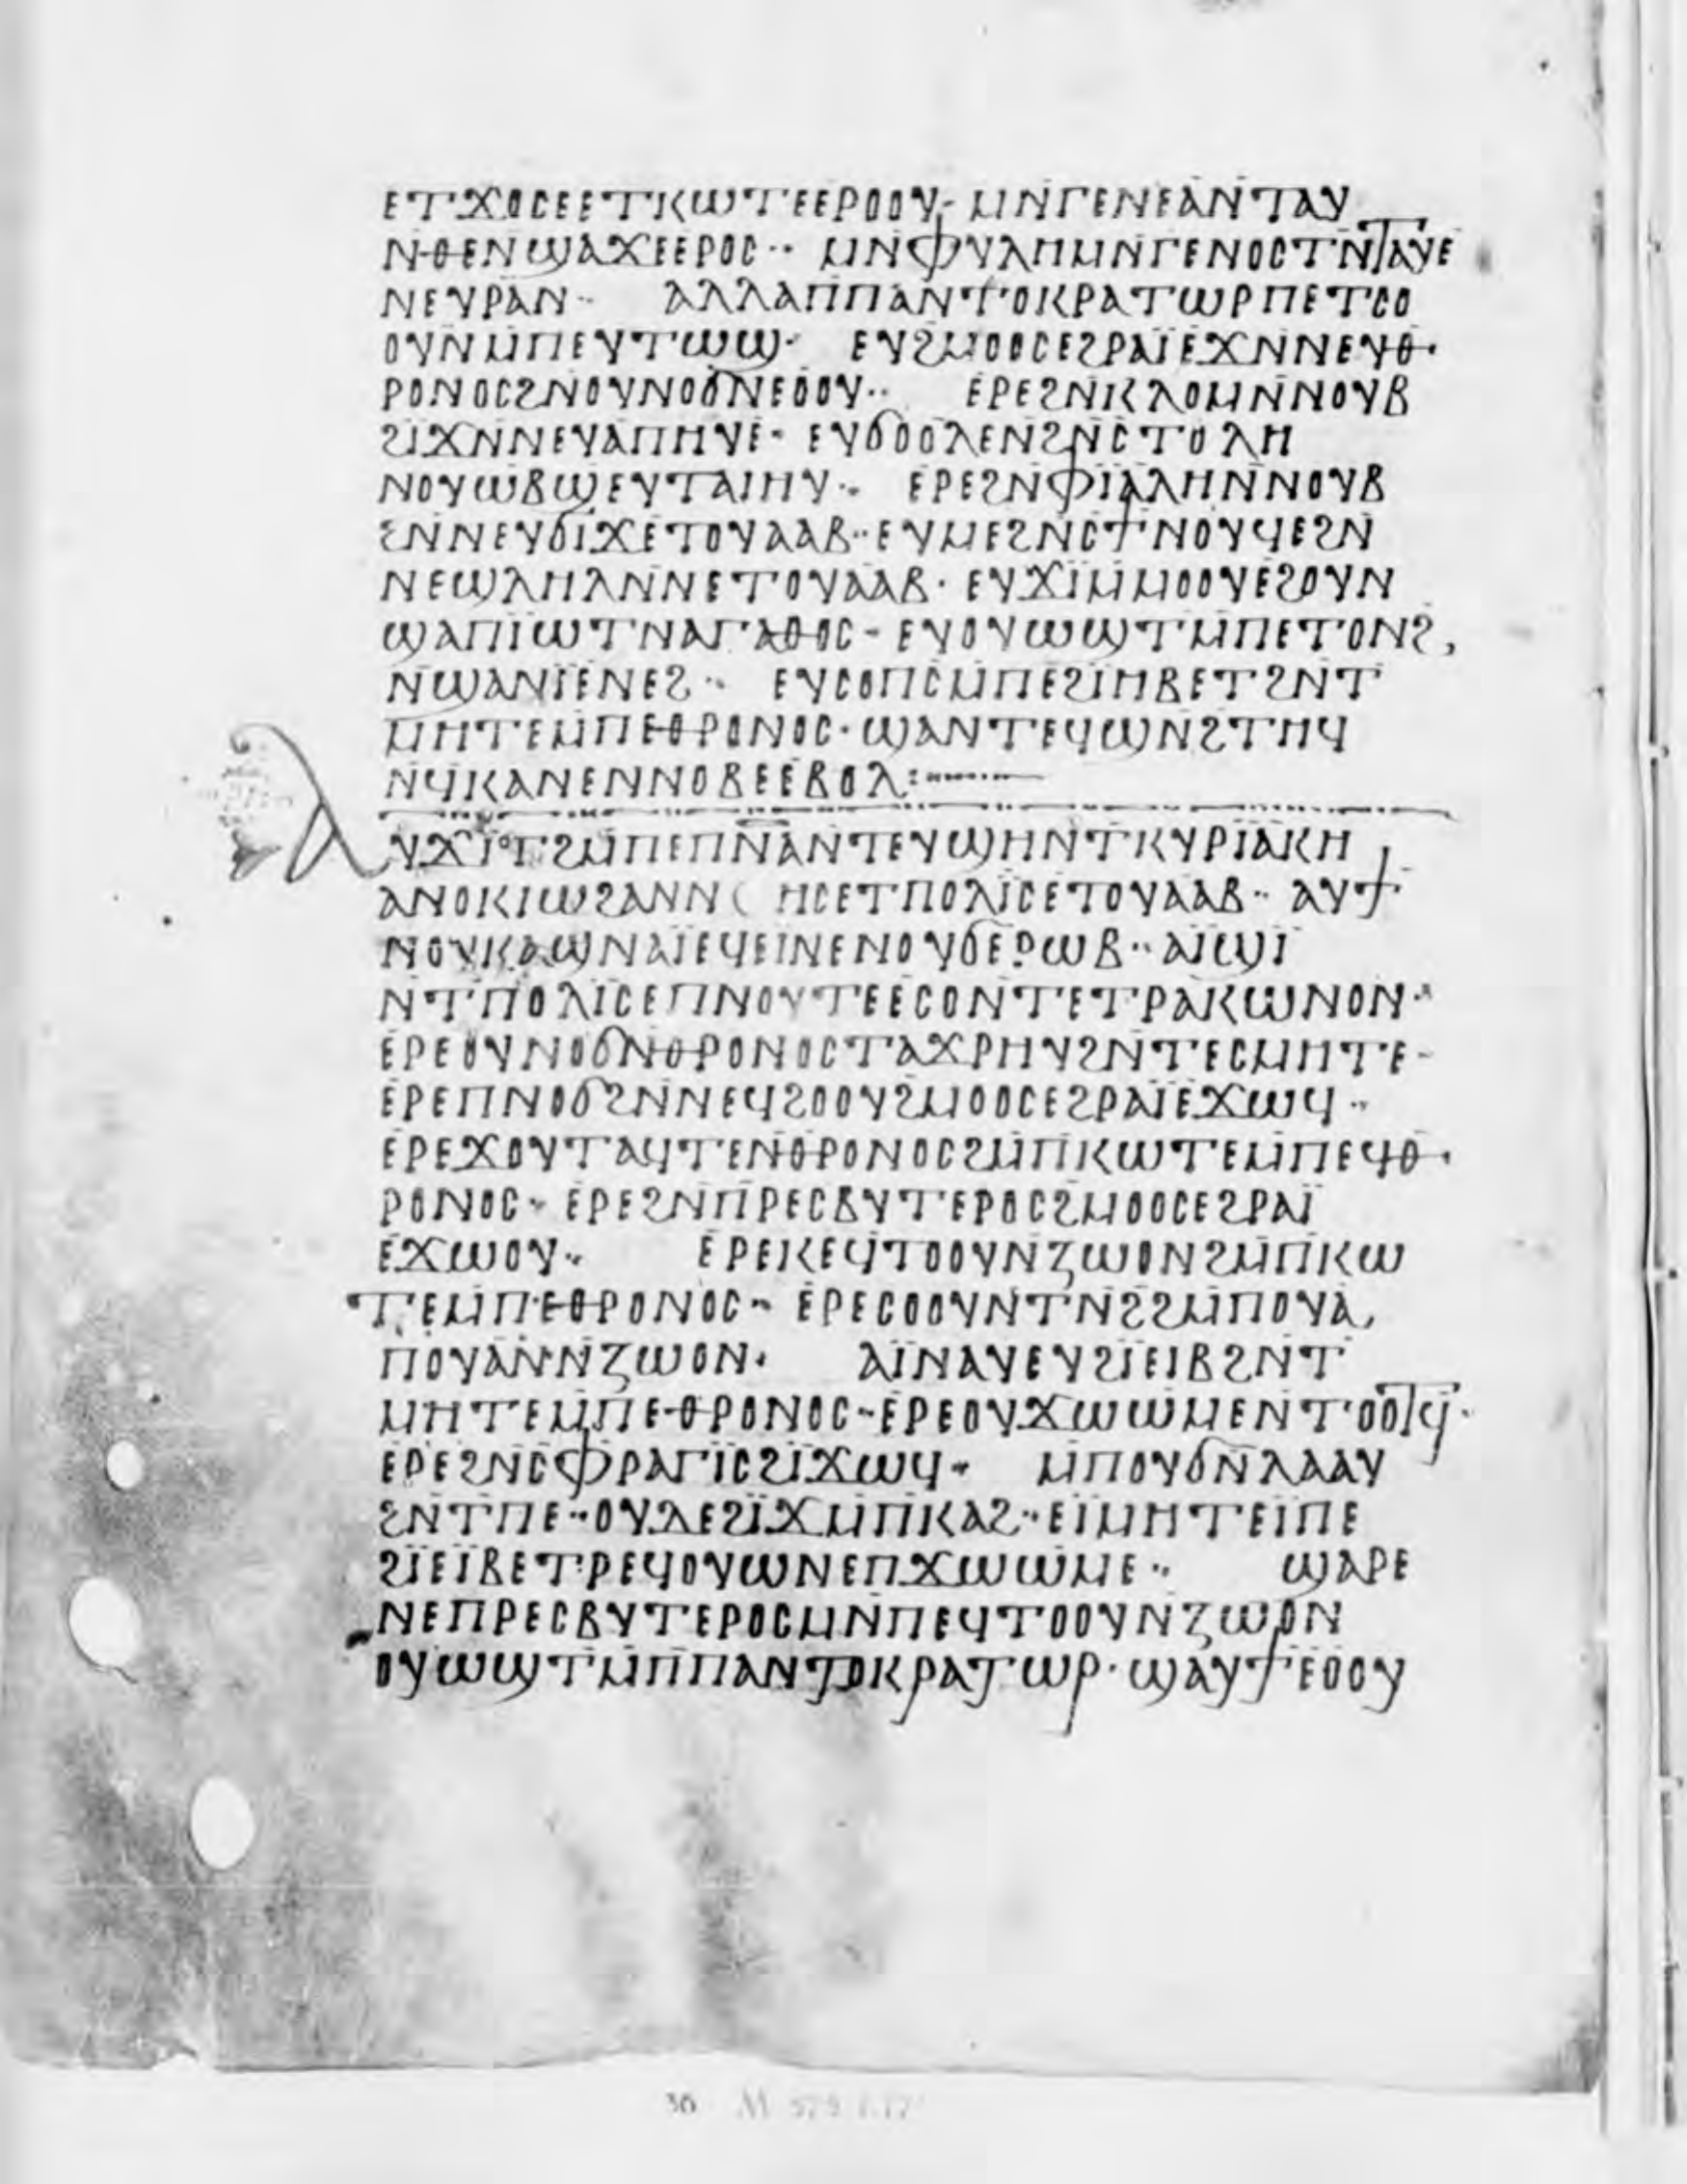 ⲉⲧϫⲟⲥⲉⲉⲧⲕⲱⲧⲉⲉⲣⲟⲟⲩ· ⲙⲛⲅⲉⲛⲉⲁⲛⲧⲁⲩ
ⲛⲑⲉⲛϣⲁϫⲉⲉⲣⲟⲥ·· ⲙⲛⲫⲩⲗⲏⲙⲛⲅⲉⲛⲟⲥⲧⲛⲧⲁⲩⲉ
ⲛⲉⲩⲣⲁⲛ·· ⲁⲗⲗⲁⲡⲡⲁⲛⲧⲟⲕⲣⲁⲧⲱⲣⲡⲉⲧⲥⲟ
ⲟⲩⲛⲙⲡⲉⲩⲧⲱϣ· ⲉⲩϩⲙⲟⲟⲥⲉϩⲣⲁⲓ̈ⲉϫⲛⲛⲉⲩⲑ·
ⲣⲟⲛⲟⲥϩⲛⲟⲩⲛⲟϭⲛⲉⲟⲟⲩ·· ⲉⲣⲉϩⲛⲕⲗⲟⲙⲛⲛⲟⲩⲃ
ϩⲓϫⲛⲛⲉⲩⲁⲡⲏⲩⲉ· ⲉⲩϭⲟⲟⲗⲉⲛϩⲛⲥⲧⲟⲗⲏ
ⲛⲟⲩⲱⲃϣⲉⲩⲧⲁⲓⲏⲩ·· ⲉⲣⲉϩⲛⲫⲓ̈ⲁⲗⲏⲛⲛⲟⲩⲃ
ϩⲛⲛⲉⲩϭⲓϫⲉⲧⲟⲩⲁⲁⲃ··ⲉⲩⲙⲉϩⲛⲥϯⲛⲟⲩϥⲉϩⲛ
ⲛⲉϣⲗⲏⲗⲛⲛⲉⲧⲟⲩⲁⲁⲃ· ⲉⲩϫⲓⲙⲙⲟⲟⲩⲉϩⲟⲩⲛ
ϣⲁⲡⲓ̈ⲱⲧⲛⲁⲅⲁⲑⲟⲥ· ⲉⲩⲟⲩⲱϣⲧⲙⲡⲉⲧⲟⲛϩ,
ⲛϣⲁⲛⲓ̈ⲉⲛⲉϩ·· ⲉⲩⲥⲟⲡⲥⲙⲡⲉϩⲓ̈ⲏⲃⲉⲧϩⲛⲧ
ⲙⲏⲧⲉⲙⲡⲉⲑⲣⲟⲛⲟⲥ· ϣⲁⲛⲧⲉϥϣⲛϩⲧⲏϥ
ⲛϥⲕⲁⲛⲉⲛⲛⲟⲃⲉⲉⲃⲟⲗ:
ⲁⲩϫⲓ̈ⲧϩⲙⲡⲉⲡⲛⲁⲛⲧⲉⲩϣⲏⲛⲧⲕⲩⲣⲓ̈ⲁⲕⲏ
ⲁⲛⲟⲕⲓⲱϩⲁⲛⲛⲏⲥⲉⲧⲡⲟⲗⲓ̈ⲥⲉⲧⲟⲩⲁⲁⲃ·· ⲁⲩϯ
ⲛⲟⲩⲕⲁϣⲛⲁⲓ̈ⲉϥⲉⲓⲛⲉⲛⲟⲩϭⲉⲣⲱⲃ·· ⲁⲓ̈ϣⲓ̈
ⲛⲧⲡⲟⲗⲓ̈ⲥⲉⲡⲛⲟⲩⲧⲉⲉⲥⲟⲛⲧⲉⲧⲣⲁⲕⲱⲛⲟⲛ··
ⲉⲣⲉⲟⲩⲛⲟϭⲛⲑⲣⲟⲛⲟⲥⲧⲁϫⲣⲏⲩϩⲛⲧⲉⲥⲙⲏⲧⲉ·
ⲉⲣⲉⲡⲛⲟϭϩⲛⲛⲉϥϩⲟⲟⲩϩⲙⲟⲟⲥⲉϩⲣⲁⲓ̈ⲉϫⲱϥ··
ⲉⲣⲉϫⲟⲩⲧⲁϥⲧⲉⲛⲑⲣⲟⲛⲟⲥϩⲙⲡⲕⲱⲧⲉⲙⲡⲉϥⲑ·
ⲣⲟⲛⲟⲥ· ⲉⲣⲉϩⲛⲡⲣⲉⲥⲃⲩⲧⲉⲣⲟⲥϩⲙⲟⲟⲥⲉϩⲣⲁⲓ̈
ⲉϫⲱⲟⲩ·· ⲉⲣⲉⲕⲉϥⲧⲟⲟⲩⲛⲍⲱⲟⲛϩⲙⲡⲕⲱ
ⲧⲉⲙⲡⲉⲑⲣⲟⲛⲟⲥ·· ⲉⲣⲉⲥⲟⲟⲩⲛⲧⲛϩϩⲙⲡⲟⲩⲁ,
ⲡⲟⲩⲁⲛⲛⲍⲱⲟⲛ· ⲁⲓ̈ⲛⲁⲩⲉⲩϩⲓ̈ⲉⲓⲃϩⲛⲧ
ⲙⲏⲧⲉⲙⲡⲉⲑⲣⲟⲛⲟⲥ·ⲉⲣⲉⲟⲩϫⲱⲱⲙⲉⲛⲧⲟⲟⲧϥ·
ⲉⲣⲉϩⲛⲥⲫⲣⲁⲅⲓ̈ⲥϩⲓ̈ϫⲱϥ· ⲙⲡⲟⲩϭⲛⲗⲁⲁⲩ
ϩⲛⲧⲡⲉ··ⲟⲩⲇⲉϩⲓ̈ϫⲙⲡⲕⲁϩ··ⲉⲓ̈ⲙⲏⲧⲉⲓ̈ⲡⲉ
ϩⲓ̈ⲉⲓ̈ⲃⲉⲧⲣⲉϥⲟⲩⲱⲛⲉⲡϫⲱⲱⲙⲉ·· ϣⲁⲣⲉ
ⲛⲉⲡⲣⲉⲥⲃⲩⲧⲉⲣⲟⲥⲙⲛⲡⲉϥⲧⲟⲟⲩⲛⲍⲱⲟⲛ
ⲟⲩⲱϣⲧⲙⲡⲡⲁⲛⲧⲟⲕⲣⲁⲧⲱⲣ· ϣⲁⲩϯⲉⲟⲟⲩ
30 M 575 f.17